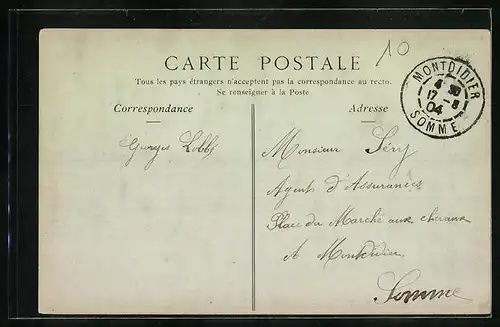 10
CARTE POSTALE
Tous les pays étrangers n'acceptent pas la correspondance au recto.
Se renseigner à la Poste
Correspondance
Adresse
MONTDIDIER
4 30
17 - 8
04
SOMME
Georges
Monsieur Séry
Agent d'Assurances
Place du Marché aux chevaux
A Montdidier
Somme